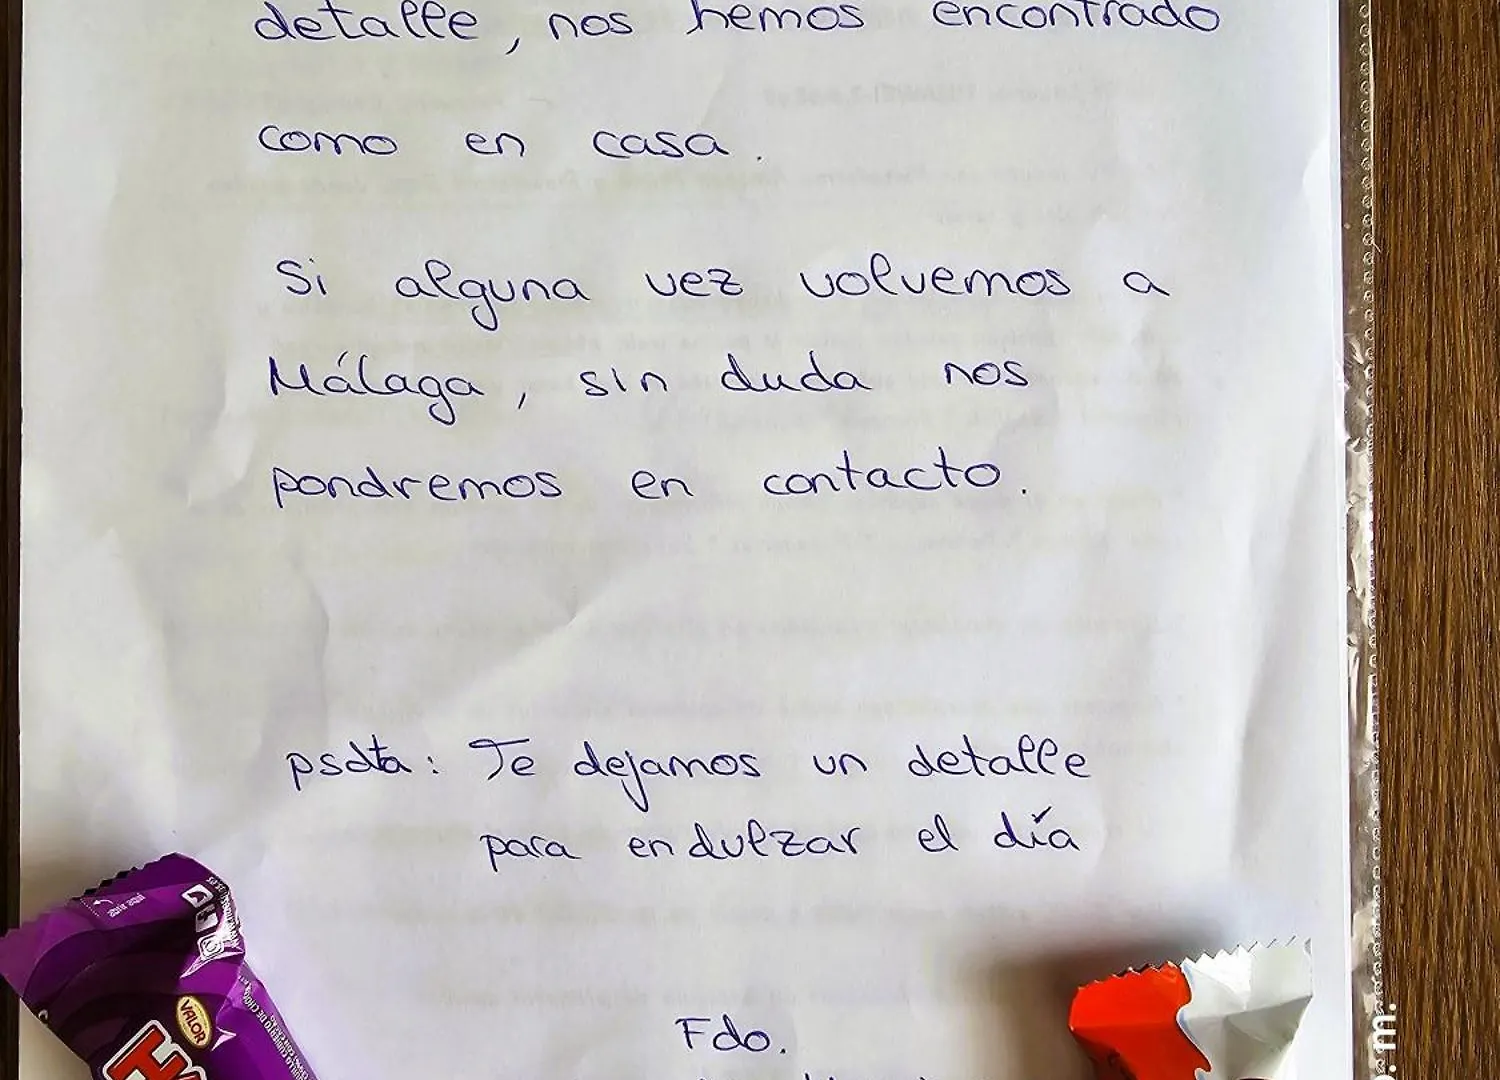 detalle, nos hemos encontrado
como en casa.
Si alguna vez volvemos a
Málaga, sin duda nos
pondremos en contacto.
psdta: Te dejamos un detalle
para endulzar el día
Fdo.
VALOR
.m.